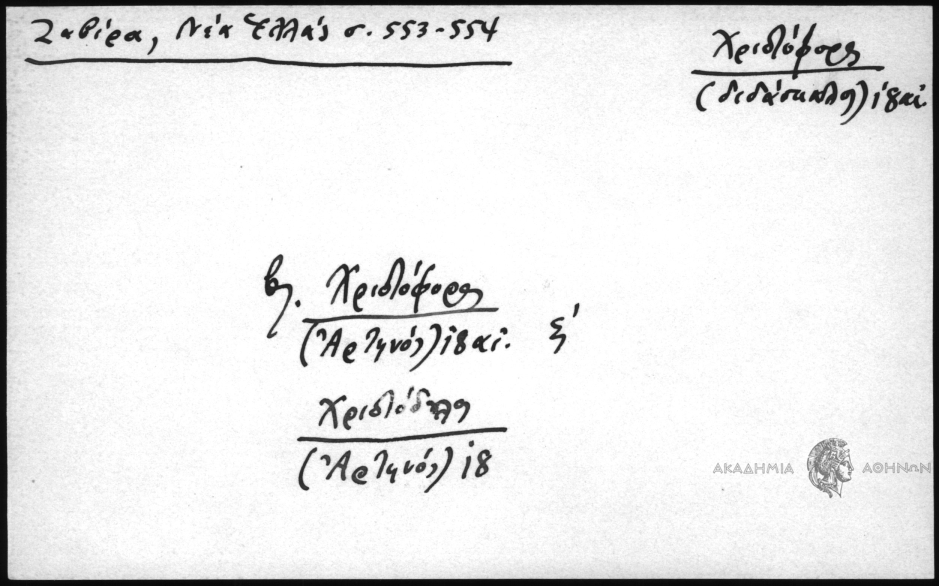 Ζαβίρα, Νέα Ἑλλάς σ. 553-554
Χριστόφορος
(διδάσκαλος) ιηαἰ.
βλ. Χριστόφορος
(Ἀρτηνός) ιηαἰ. ξ'
Χριστόδουλος
(Ἀρτηνός) ιη
ΑΚΑΔΗΜΙΑ ΑΘΗΝΩΝ